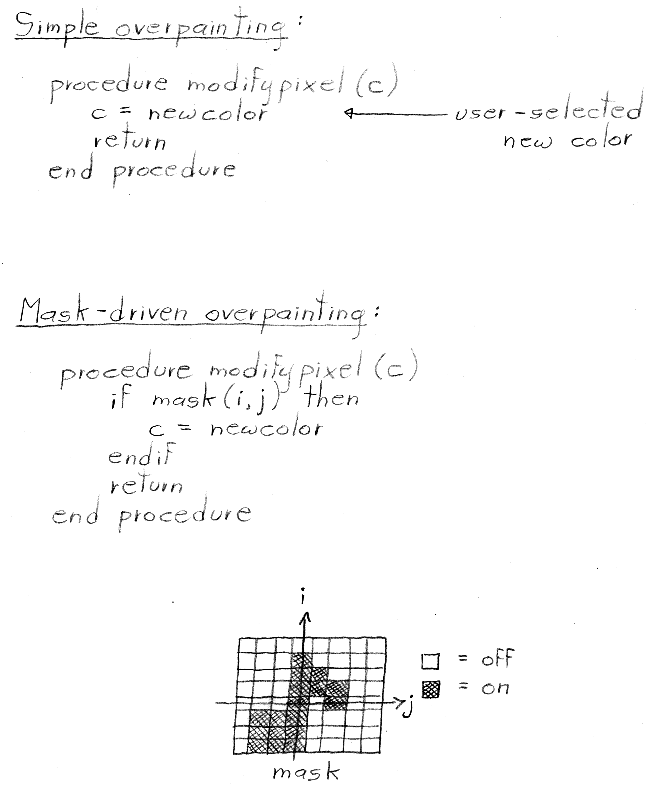 Simple overpainting:
procedure modifypixel (c)
c = newcolor
user-selected
new color
return
end procedure
Mask-driven overpainting:
procedure modifypixel (c)
if mask (i,j) then
c = newcolor
endif
return
end procedure
i
= off
= on
j
mask